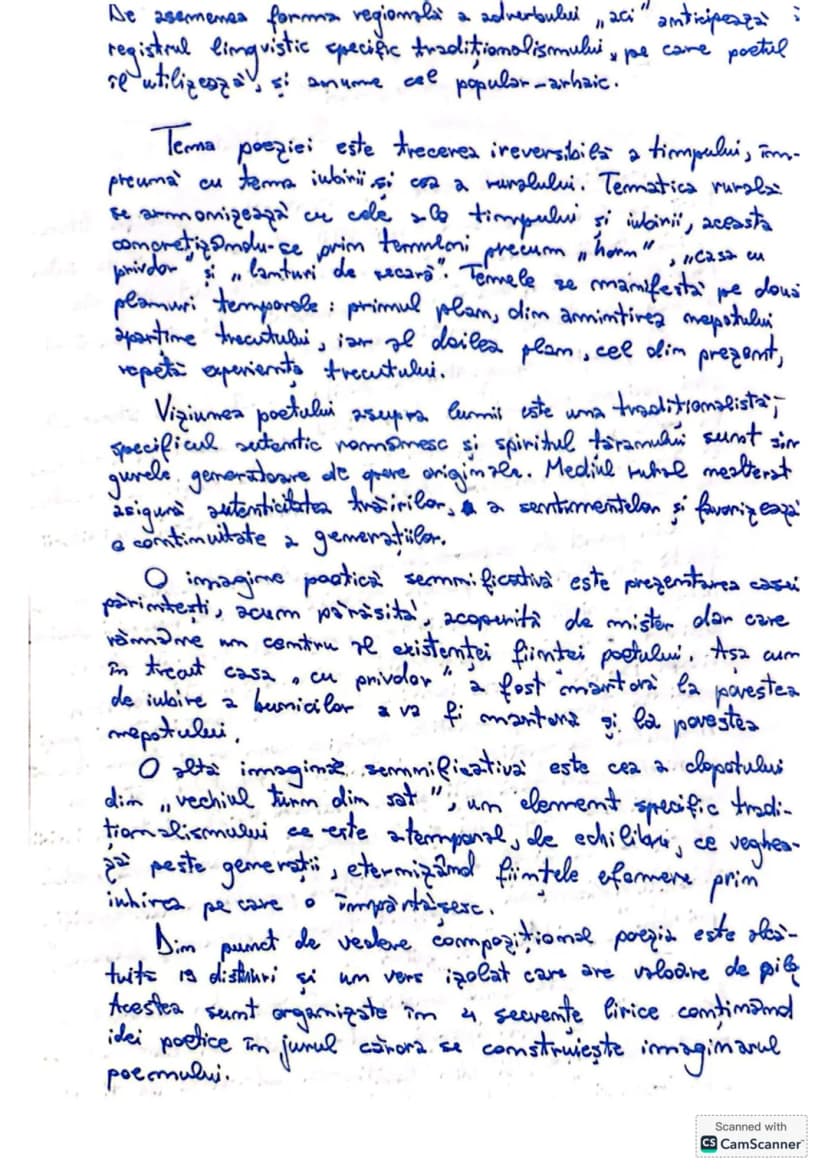 De asemenea forma regională a adverbului „aci" anticipează
registrul lingvistic specific tradiționalismului, pe care poetul
îl utilizează, și anume cel popular-arhaic.
Tema poeziei este trecerea ireversibilă a timpului, îm-
preună cu tema iubirii și cea a ruralului. Tematica rurală
se armonizează cu cele ale timpului și iubirii, aceasta
concretizându-se prin termeni precum „horn", „casa cu
pridvor" și „lanuri de secară". Temele se manifestă pe două
planuri temporale: primul plan, din amintirea nepotului
aparține trecutului, iar al doilea plan, cel din prezent,
repetă experiența trecutului.
Viziunea poetului asupra lumii este una tradiționalistă;
specificul autentic românesc și spiritul tărâmului sunt sin
gurele generatoare de opere originale. Mediul rural nealterat
asigură autenticitatea trăirilor, a sentimentelor și favorizează
o continuitate a generațiilor.
O imagine poetică semnificativă este prezentarea casei
părintești, acum părăsită, acoperită de mister dar care
rămâne un centru al existenței ființei poetului. Așa cum
în trecut casa „cu pridvor" a fost martoră la povestea
de iubire a bunicilor a va fi martoră și la povestea
nepotului.
O altă imagine semnificativă este cea a clopotului
din „vechiul turn din sat", un element specific tradi-
ționalismului ce este atemporal, de echilibru, ce veghea-
ză peste generații, eternizând ființele efemere prin
iubirea pe care o împărtășesc.
Din punct de vedere compozițional poezia este alcă-
tuită 19 distihuri și un vers izolat care are valoare de
Acestea sunt organizate în 4 secvențe lirice conținând
idei poetice în jurul cărora se construiește imaginarul
poemului.
Scanned with
CS CamScanner